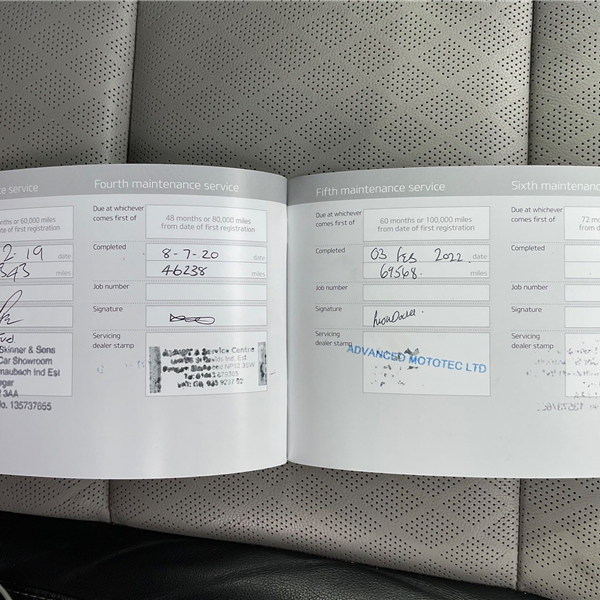 ce service
onths or 60,000 miles
te of first registration
2.19 date
343 miles
Skinner & Sons
Car Showroom
Ind Est
3AA
No. 135737855
Fourth maintenance service
Due at whichever comes first of
48 months or 80,000 miles
from date of first registration
Completed
8-7-20 date
46238 miles
Job number
Signature
Servicing
dealer stamp
& Service Centre
Ind. Est
NP12 3SW
Fifth maintenance service
Due at whichever
comes first of
60 months or 100,000 miles
from date of first registration
Completed
03 FEB 2022 date
69568. miles
Job number
Signature
Servicing
dealer stamp
ADVANCED MOTOTEC LTD
Sixth maintenanc
Due at whichever
comes first of
72 mo
from d
Completed
Job number
Signature
Servicing
dealer stamp